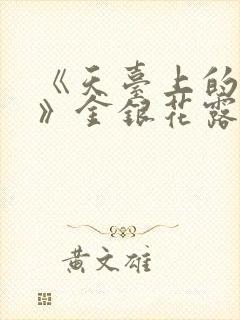 《天臺上的
》金银花露
黄文雄